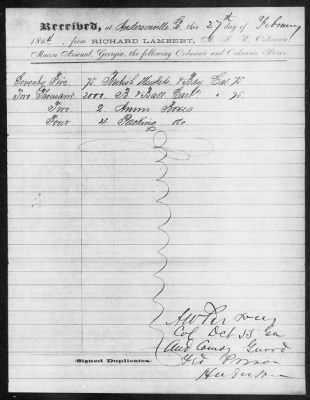 Received, at Andersonville, G. this 27th day of February
1864, from RICHARD LAMBERT, M. S. K. Ordnance,
Macon Arsenal, Georgia, the following Ordnance and Ordnance Stores.
Seventy Five 75 British Muskets & Bay Cal 75
Two Thousand 2000 B & Ball Cart " 75
Two 2 Amm Boxes
Four 4 Packing do
A W Persons
Col 55 Ga
And Comdg Guard
Fed Prison
(Signed Duplicates.)